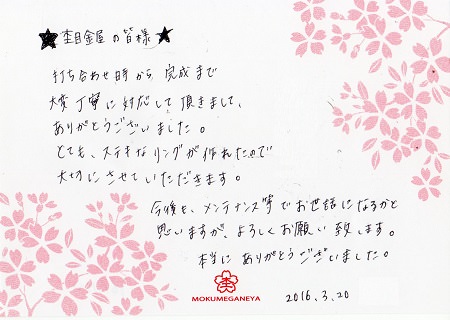 ★杢目金屋の皆様★
打ち合わせ時から完成まで
大変丁寧に対応して頂きまして、
ありがとうございました。
とても、ステキなリングが作れたので
大切にさせていただきます。
今後も、メンテナンス等でお世話になるかと
思いますが、よろしくお願い致します。
本当にありがとうございました。
杢
MOKUMEGANEYA
2016.3.20